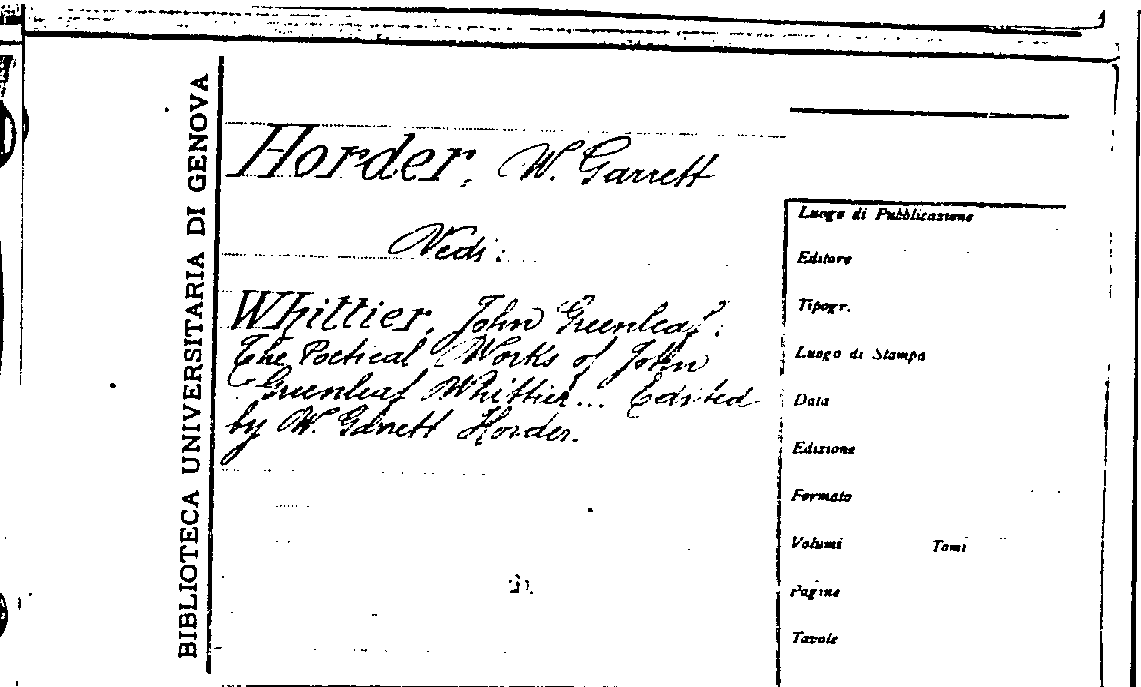 BIBLIOTECA UNIVERSITARIA DI GENOVA
Horder, W. Garrett
Vedi:
Whittier, John Greenleaf:
The Poetical Works of John
Greenleaf Whittier... Edited
by W. Garrett Horder.
Luogo di Pubblicazione
Editore
Tipogr.
Luogo di Stampa
Data
Edizione
Formato
Volumi Tomi
Pagine
Tavole